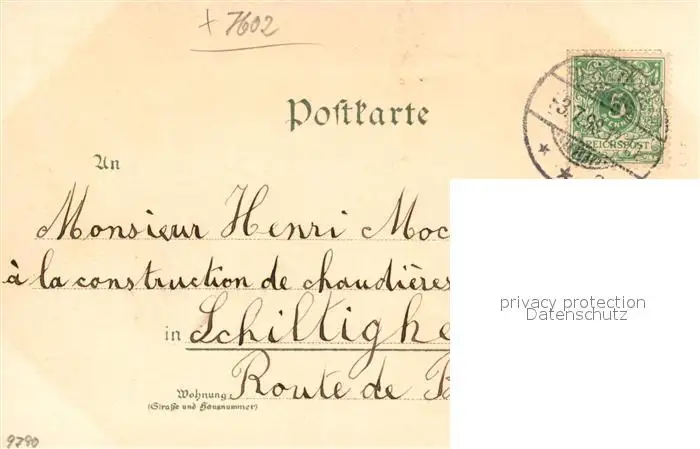 + 7602
Postkarte
5
REICHSPOST
An
Monsieur Henri Moc
à la construction de chaudières
privacy protection
Datenschutz
in Schiltighe
Route de B
Wohnung
(Straße und Hausnummer)
9780